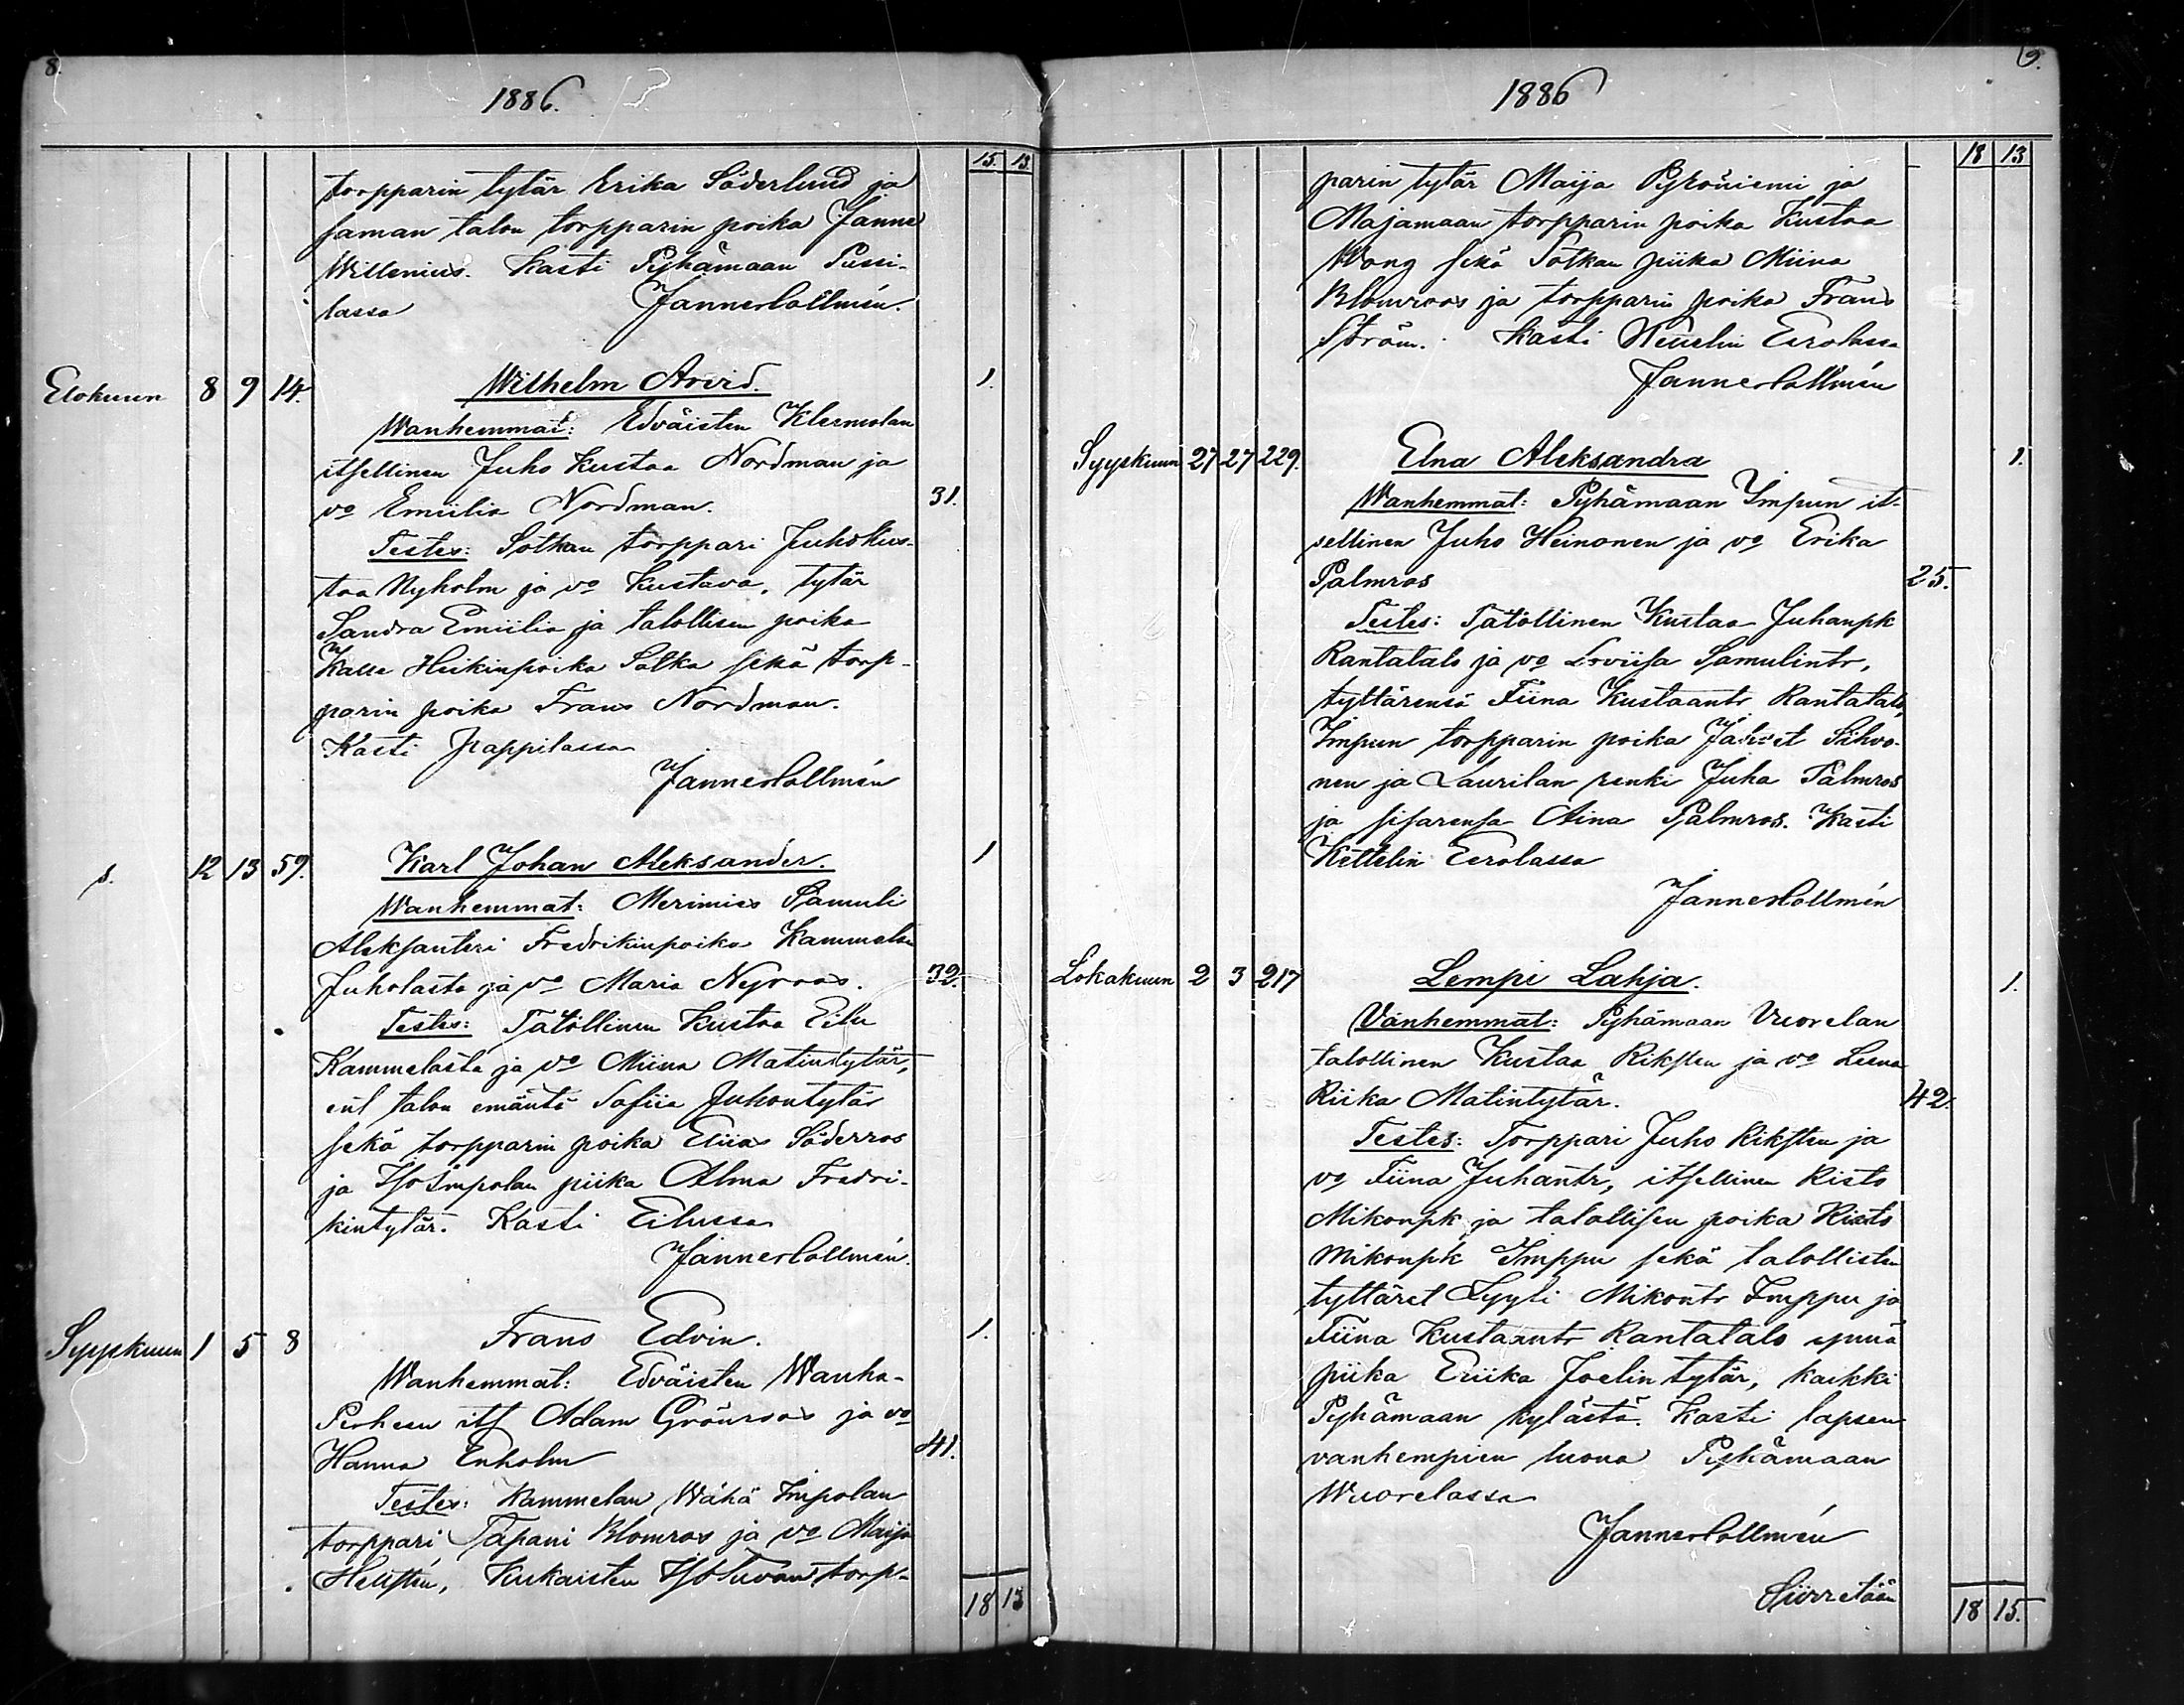 8.
1886.
15. 13.
torpparin tytär Erika Söderlund ja
saman talon torpparin poika Janne
Willenius. Kasti Pyhämaan Pussi-
lassa Janne Collmén.
Elokuun 8 9 14. Wilhelm Arvid. 1.
Wanhemmat: Edväisten Klemolan
itsellinen Juho Kustaa Nordman ja
vo Emiilia Nordman. 31.
Testes: Sotkan torppari Juho Kus-
taa Nyholm ja vo Kustava, tytär
Sandra Emiilia ja talollisen poika
Kalle Heikinpoika Sotka sekä torp-
parin poika Frans Nordman.
Kasti pappilassa
Janne Collmén
s. 12 13 59. Karl Johan Aleksander. 1
Wanhemmat: Merimies Samuli
Aleksanteri Fredrikinpoika Kammelan
Juholasta ja vo Maria Nyroos. 32.
Testes: Talollinen Kustaa Eilu
Kammelasta ja vo Miina Matintytär,
ent talon emäntä Sofiia Juhontytär
sekä torpparin poika Eliias Söderros
ja Iso Impolan piika Alma Fredri-
kintytär. Kasti Eilussa
Janne Collmén.
Syyskuun 1 5 8 Frans Edvin. 1.
Wanhemmat: Edväisten Wanha-
Perheen its Adam Grönroos ja vo
Hanna Enholm 41.
Testes: Kammelan Wähä Impolan
torppari Tapani Blomros ja vo Maija
Hellstén, Kukaisten Iso torp-
18 13
9.
1886
18 13
parin tytär Maija Pyköniemi ja
Majamaan torpparin poika Kustaa
Wong sekä Sotkan piika Miina
Blomroos ja torpparin poika Frans
Ström. Kasti Eerolassa
Janne Collmén
Syyskuun 27 27 229. Elna Aleksandra 1.
Wanhemmat: Pyhämaan Impun it-
sellinen Juho Heinonen ja vo Erika
Palmros 25.
Testes: Talollinen Kustaa Juhanpk
Rantatalo ja vo Loviisa Samulintr,
tyttärensä Fiina Kustaantr Rantatalo,
Impun torpparin poika Sihvo-
nen ja Laurilan renki Juha Palmros
ja sisarensa Aina Palmros. Kasti
Kettelin Eerolassa
Janne Collmén
Lokakuun 2 3 217 Lempi Lahja. 1.
Vanhemmat: Pyhämaan Vuorelan
talollinen Kustaa Riksten ja vo Leena
Riika Matintytär. 42.
Testes: Torppari Juho Riksten ja
vo Fiina Juhantr, itsellinen Risto
Mikonpk ja talollisen poika Risto
Mikonpk Imppu sekä talollisten
tyttäret Lyyti Mikontr Imppu ja
Fiina Kustaantr Rantatalo ynnä
piika Eriika Joelin tytär, kaikki
Pyhämaan kylästä. Kasti lapsen
vanhempien luona Pyhämaan
Wuorelassa
Janne Collmén
Siirretään
18 15.